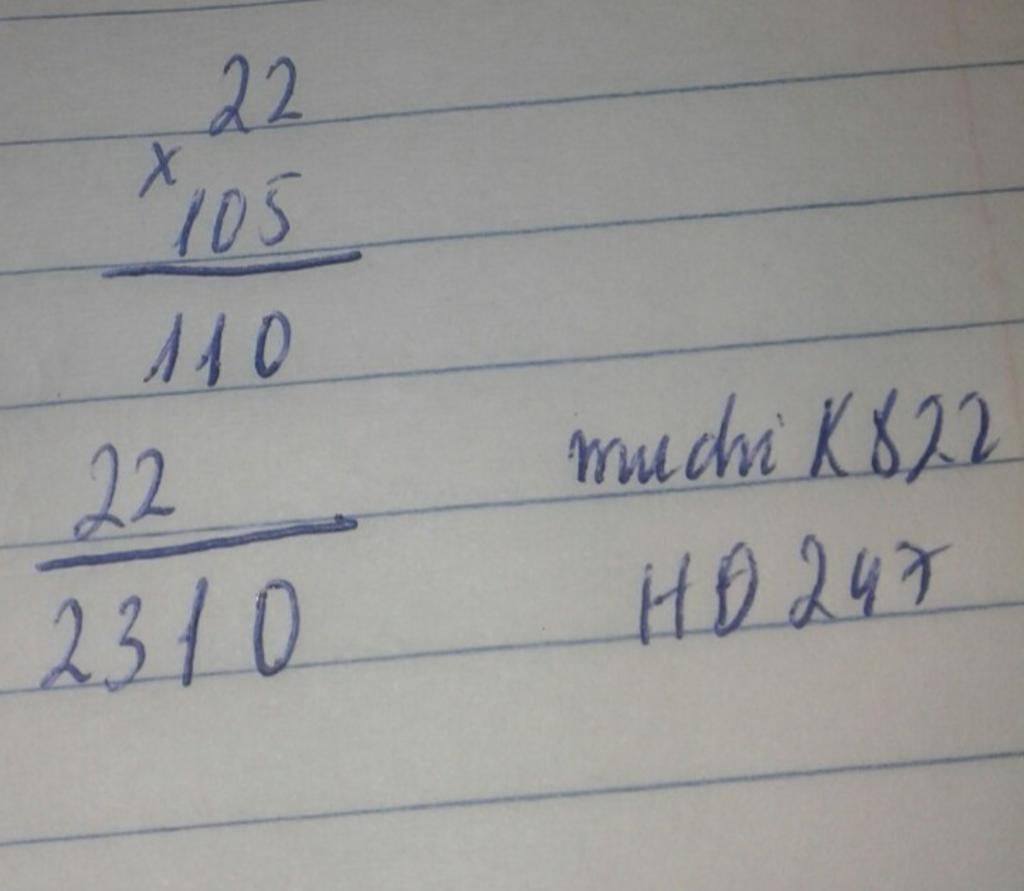 22
x
105
110
22
2310
muchi K822
HD 247